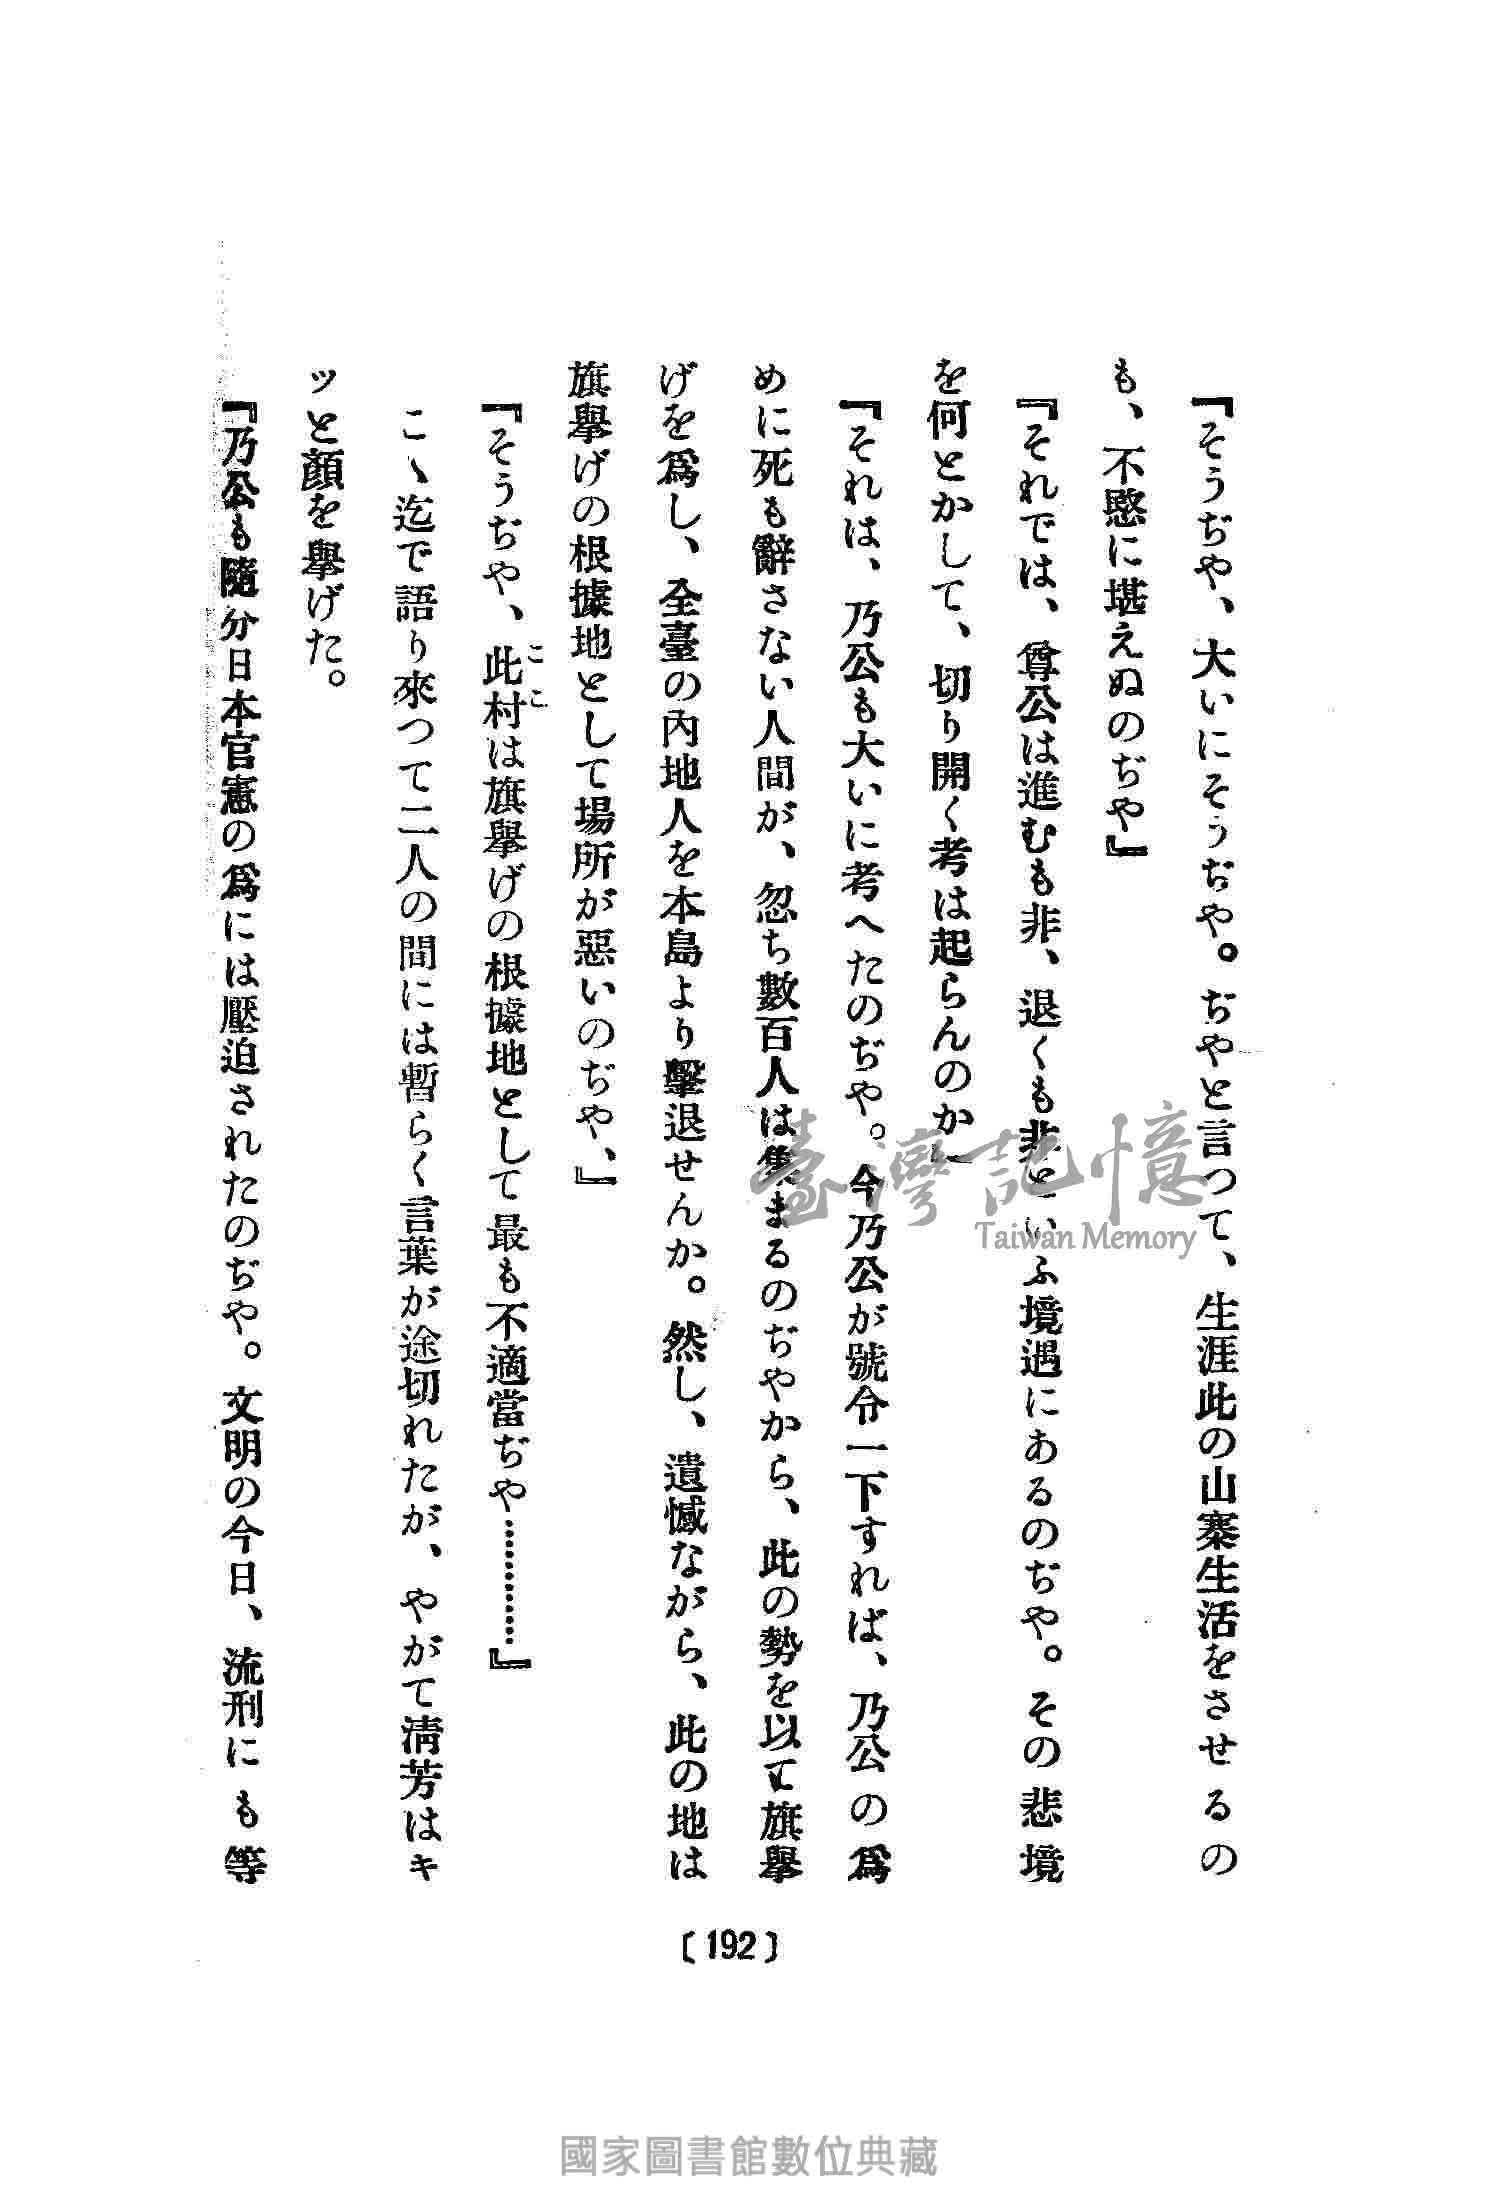 『そうぢや、大いにそうぢや。ぢやと言つて、生涯此の山寨生活をさせるの
も、不愍に堪えぬのぢや』
『それでは、尊公は進むも非、退くも非といふ境遇にあるのぢや。その悲境
を何とかして、切り開く考は起らんのか』
『それは、乃公も大いに考へたのぢや。今乃公が號令一下すれば、乃公の爲
めに死も辭さない人間が、忽ち數百人は集まるのぢやから、此の勢を以て旗擧
げを爲し、全臺の內地人を本島より擊退せんか。然し、遺憾ながら、此の地は
旗擧げの根據地として場所が惡いのぢや、』
『そうぢや、此村は旗擧げの根據地として最も不適當ぢや…………』
ここ
こゝ迄で語り來つて二人の間には暫らく言葉が途切れたが、やがて淸芳はキ
ッと顏を擧げた。
『乃公も隨分日本官憲の爲には壓迫されたのぢや。文明の今日、流刑にも等
〔192〕
臺灣記憶
Taiwan Memory
國家圖書館數位典藏